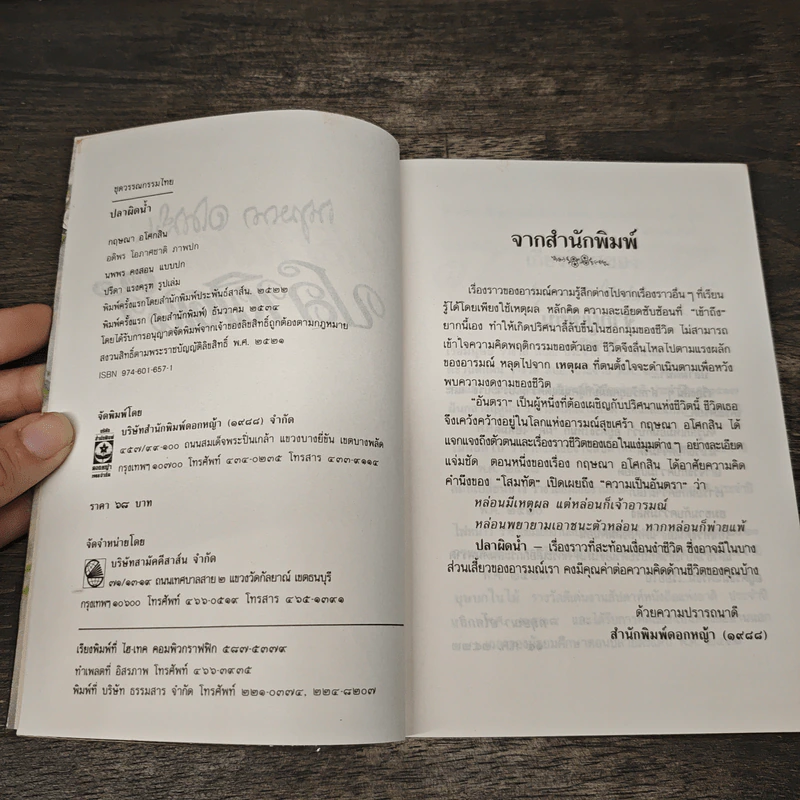 ชุดวรรณกรรมไทย
ปลาผิดน้ำ
กฤษณา อโศกสิน
อดิพร โอภาศชาติ ภาพปก
นพพร คงสอน แบบปก
ปรีดา แรงครุฑ รูปเล่ม
พิมพ์ครั้งแรกโดยสำนักพิมพ์ประพันธ์สาส์น. ๒๕๒๒
พิมพ์ครั้งแรก (โดยสำนักพิมพ์) ธันวาคม ๒๕๓๔
โดยได้รับการอนุญาตจัดพิมพ์จากเจ้าของลิขสิทธิ์ถูกต้องตามกฎหมาย
สงวนสิทธิ์ตามพระราชบัญญัติลิขสิทธิ์ พ.ศ. ๒๕๒๑
ISBN 974-601-657-1
จัดพิมพ์โดย
บริษัทสำนักพิมพ์ดอกหญ้า (๑๙๘๘) จำกัด
๔๕๗/๙๙-๑๐๐ ถนนสมเด็จพระปิ่นเกล้า แขวงบางยี่ขัน เขตบางพลัด
กรุงเทพฯ ๑๐๗๐๐ โทรศัพท์ ๔๓๔-๐๒๓๕ โทรสาร ๔๓๓-๙๑๑๔
ราคา ๖๘ บาท
จัดจำหน่ายโดย
บริษัทสามัคคีสาส์น จำกัด
๗๑/๑๓๑๙ ถนนเทศบาลสาย ๒ แขวงวัดกัลยาณ์ เขตธนบุรี
กรุงเทพฯ ๑๐๖๐๐ โทรศัพท์ ๔๖๖-๐๕๑๙ โทรสาร ๔๖๕-๑๓๙๑
เรียงพิมพ์ที่ ไฮ-เทค คอมพิวกราฟฟิก ๕๘๗-๕๓๗๙
ทำเพลตที่ อิสรภาพ โทรศัพท์ ๔๖๖-๓๙๓๕
พิมพ์ที่ บริษัท ธรรมสาร จำกัด โทรศัพท์ ๒๒๑-๐๓๗๔, ๒๒๔-๘๒๐๗
จากสำนักพิมพ์
เรื่องราวของอารมณ์ความรู้สึกต่างไปจากเรื่องราวอื่น ๆ ที่เรียน
รู้ได้โดยเพียงใช้เหตุผล หลักคิด ความละเอียดซับซ้อนที่ "เข้าถึง"
ยากนี้เอง ทำให้เกิดปริศนาลี้ลับขึ้นในซอกมุมของชีวิต ไม่สามารถ
เข้าใจความคิดพฤติกรรมของตัวเอง ชีวิตจึงลื่นไหลไปตามแรงผลัก
ของอารมณ์ หลุดไปจาก เหตุผล ที่ตนตั้งใจจะดำเนินตามเพื่อหวัง
พบความงดงามของชีวิต
"อันตรา" เป็นผู้หนึ่งที่ต้องเผชิญกับปริศนาแห่งชีวิตนี้ ชีวิตเธอ
จึงเคว้งคว้างอยู่ในโลกแห่งอารมณ์สุขเศร้า กฤษณา อโศกสิน ได้
แจกแจงถึงตัวตนและเรื่องราวชีวิตของเธอในแง่มุมต่าง ๆ อย่างละเอียด
แจ่มชัด ตอนหนึ่งของเรื่อง กฤษณา อโศกสิน ได้อาศัยความคิด
คำนึงของ "โสมทัต" เปิดเผยถึง "ความเป็นอันตรา" ว่า
หล่อนมีเหตุผล แต่หล่อนก็เจ้าอารมณ์
หล่อนพยายามเอาชนะตัวหล่อน หากหล่อนก็พ่ายแพ้
ปลาผิดน้ำ – เรื่องราวที่สะท้อนเงื่อนงำชีวิต ซึ่งอาจมีในบาง
ส่วนเสี้ยวของอารมณ์เรา คงมีคุณค่าต่อความคิดด้านชีวิตของคุณบ้าง
ด้วยความปรารถนาดี
สำนักพิมพ์ดอกหญ้า (๑๙๘๘)